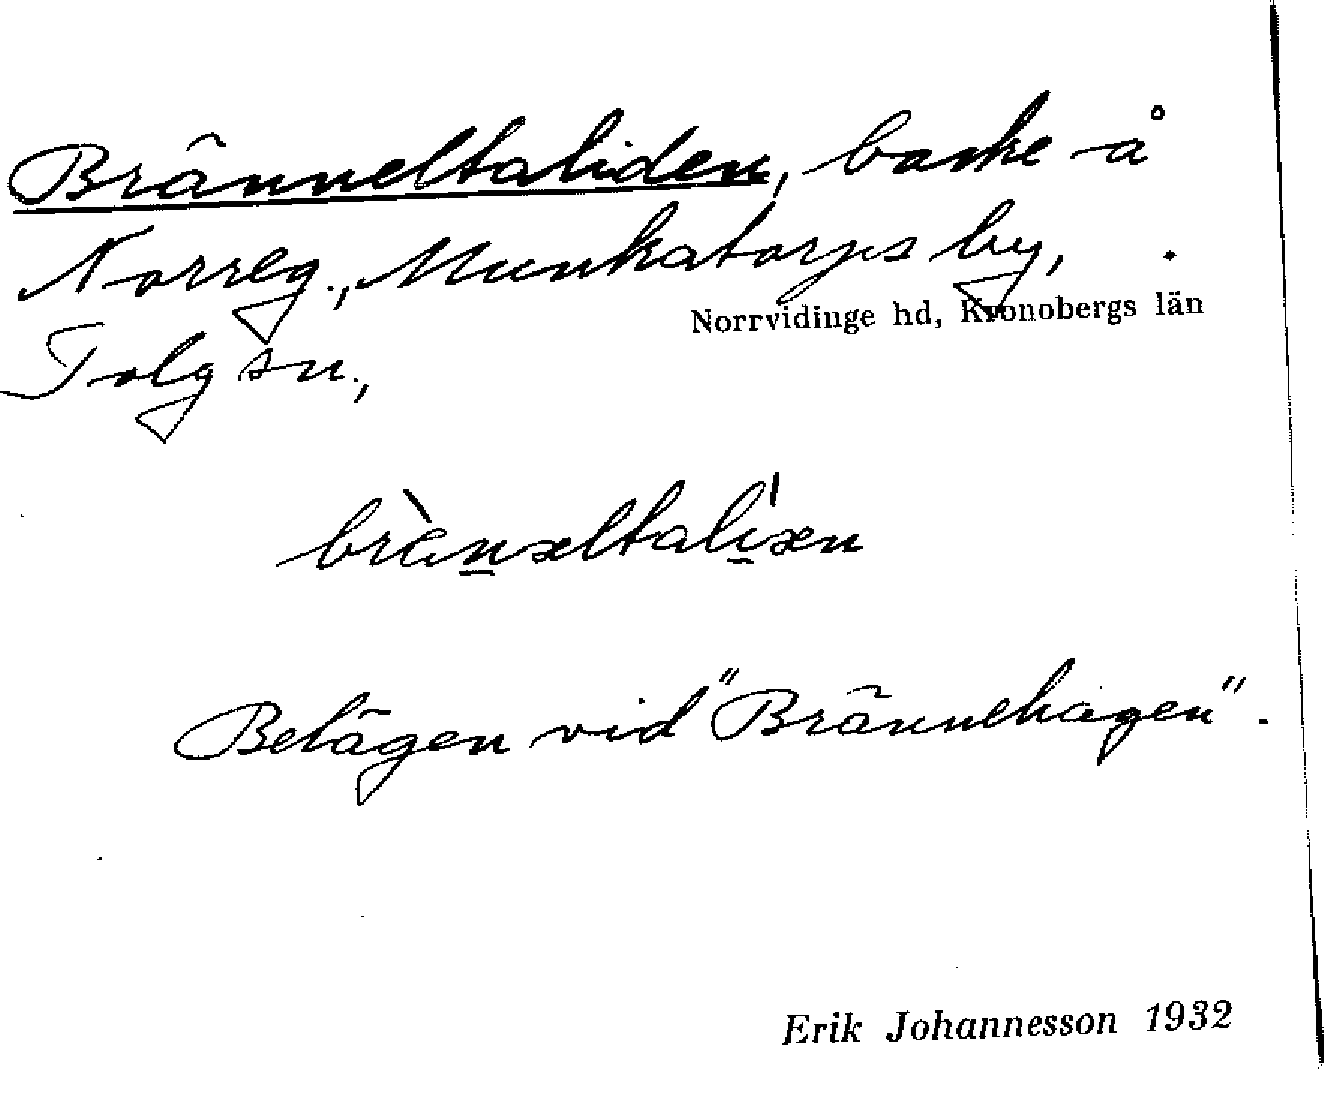 Bränneltaliden, backe å
Norreg., Munkatorps by,
Norrvidinge hd, Kronobergs län
Tolg sn.,
Belägen vid "Brännehagen".
Erik Johannesson 1932